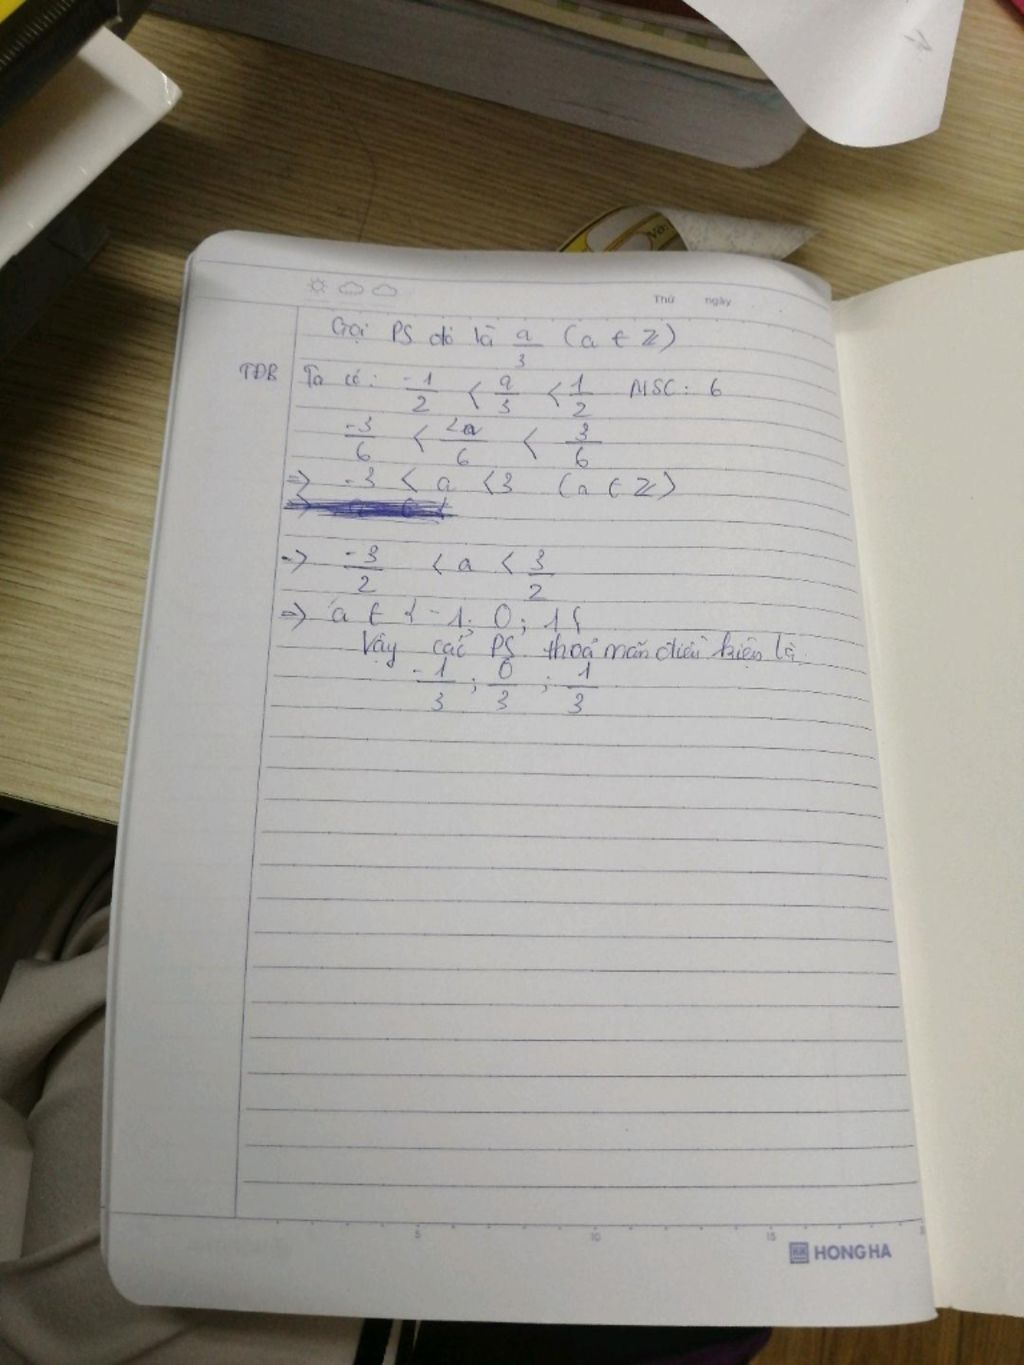 Thứ ngày
Gọi PS đó là a/3 (a ∈ Z)
TĐB Ta có: -1/2 < a/3 < 1/2 MSC: 6
-3/6 < 2a/6 < 3/6
=> -3 < a < 3 (a ∈ Z)
=> -3/2 < a < 3/2
=> a ∈ { -1; 0; 1 {
Vậy các PS thoả mãn điều kiện là
-1/3 ; 0/3 ; 1/3
5 10 15
HONG HA